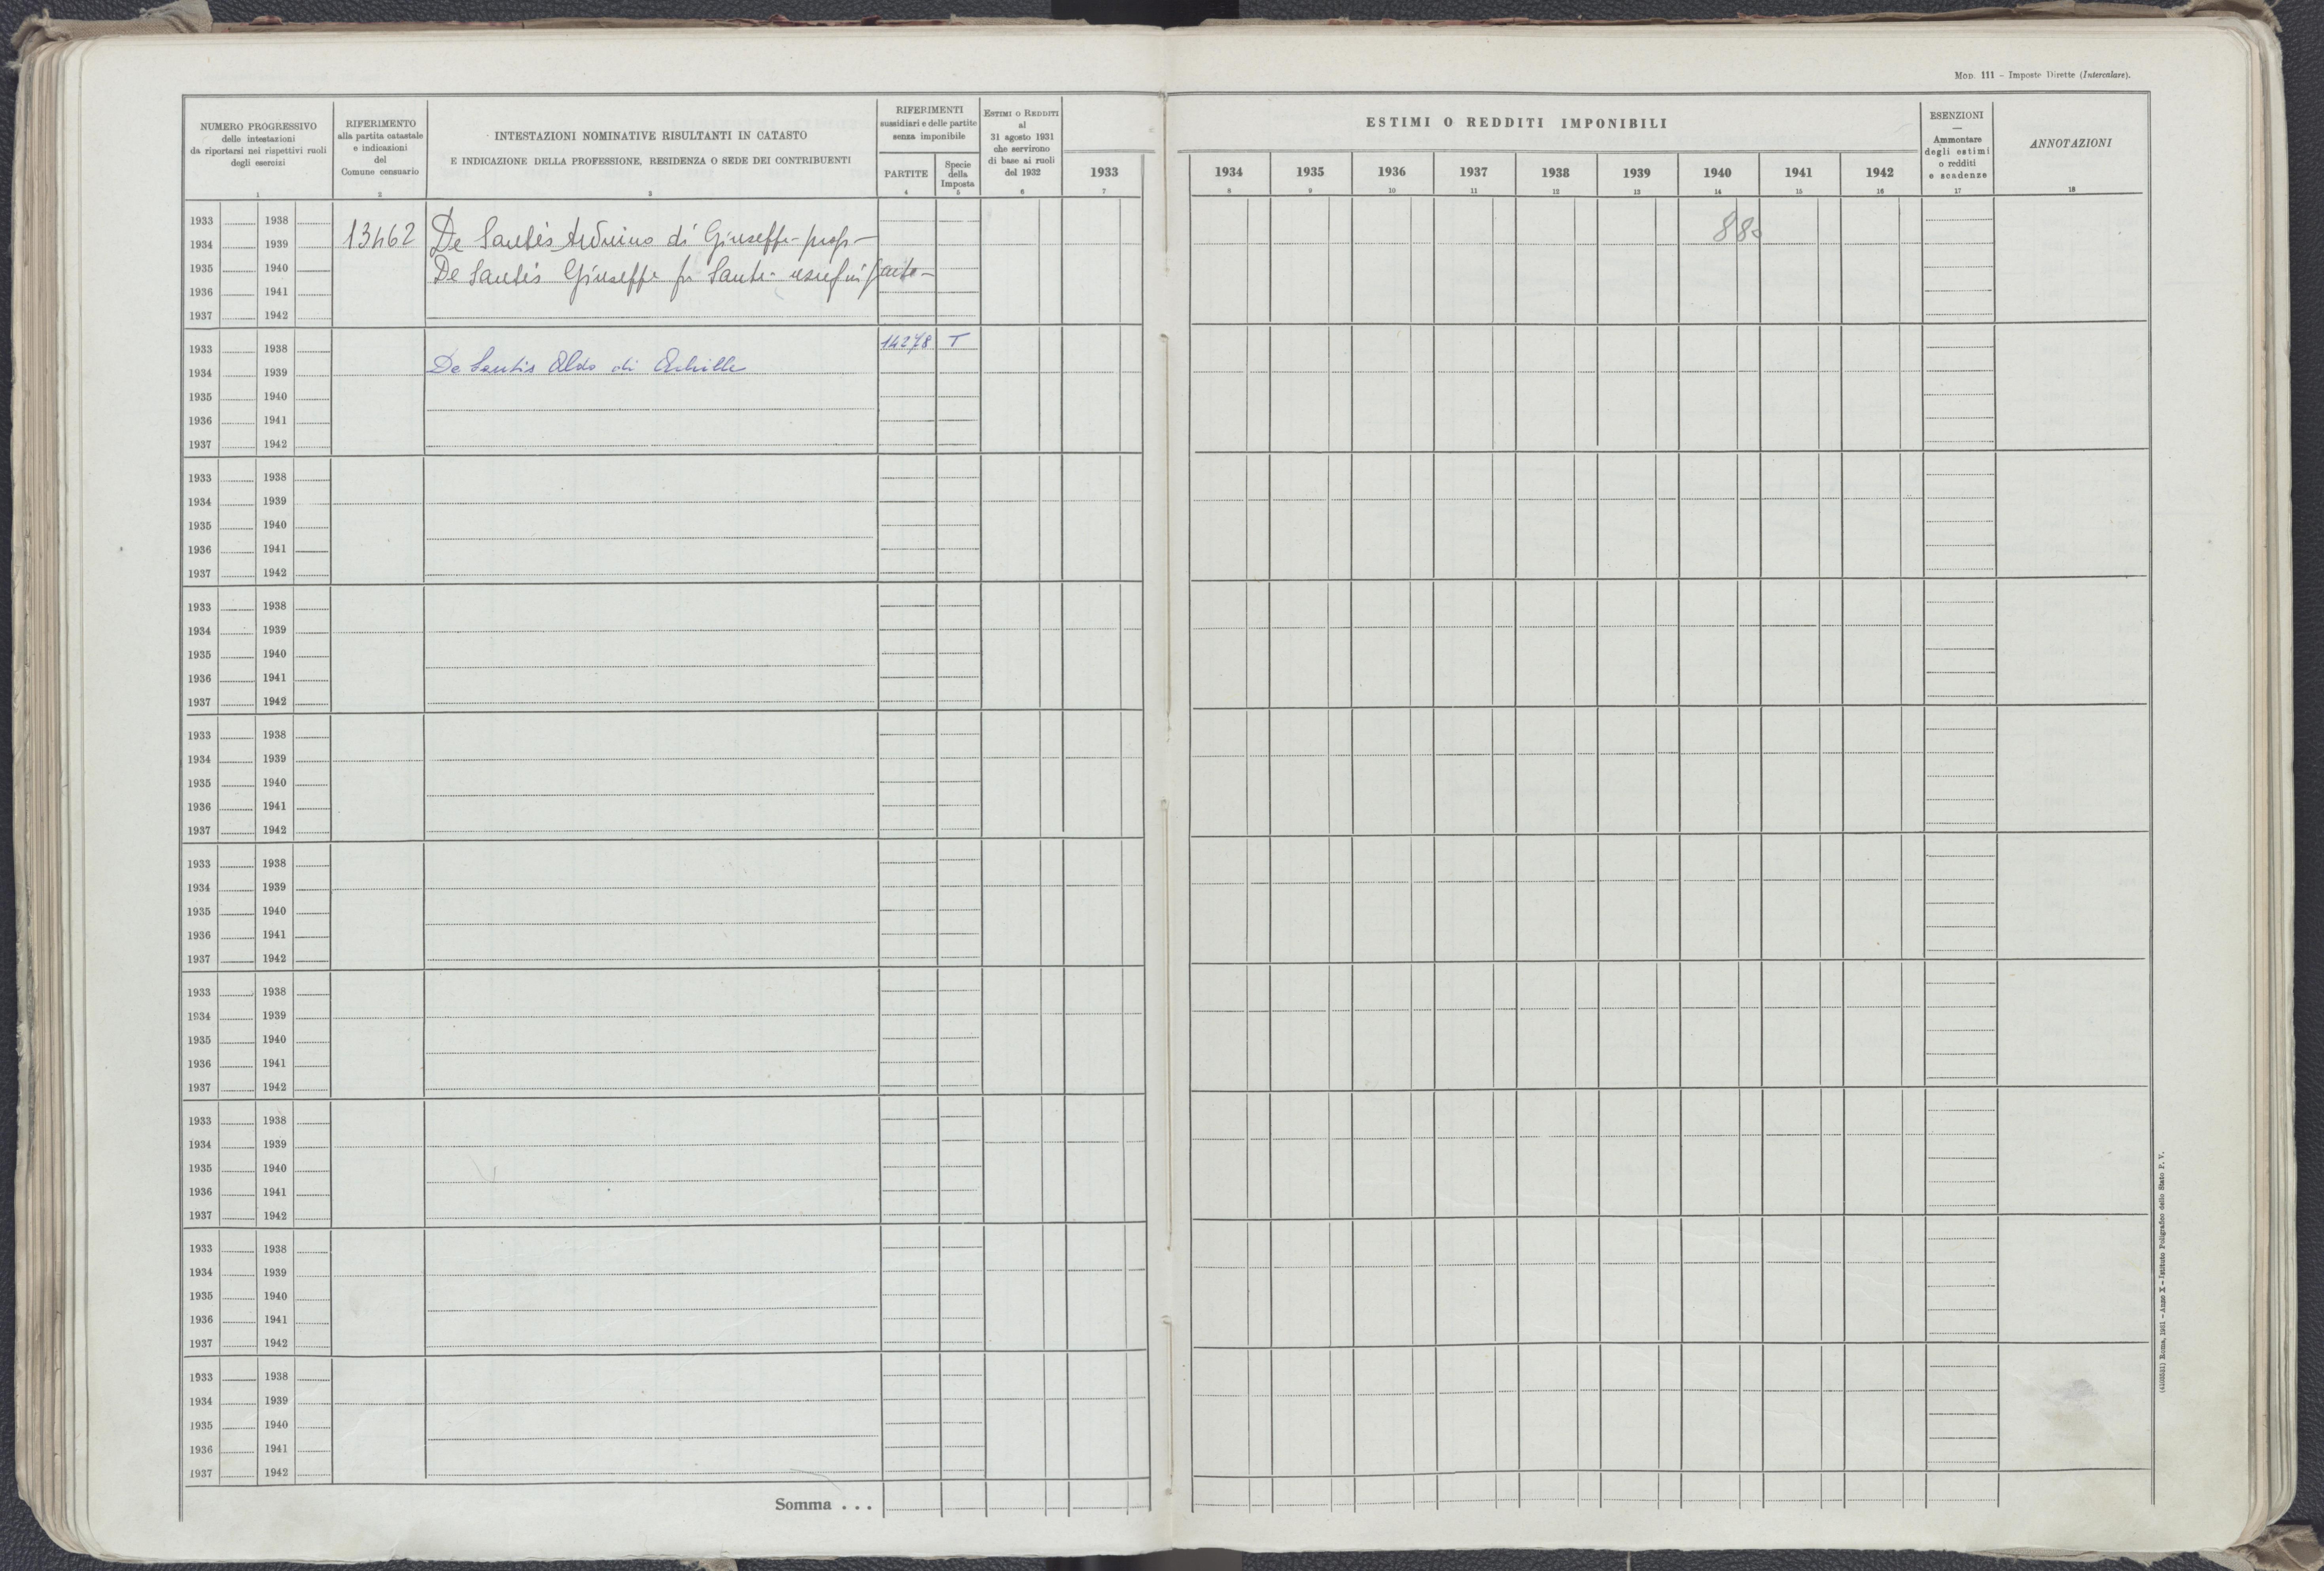 Mod. 111 – Imposte Dirette (Intercalare).
NUMERO PROGRESSIVO
delle intestazioni
da riportarsi nei rispettivi ruoli
degli esercizi
1
RIFERIMENTO
alla partita catastale
e indicazioni
del
Comune censuario
2
INTESTAZIONI NOMINATIVE RISULTANTI IN CATASTO
E INDICAZIONE DELLA PROFESSIONE, RESIDENZA O SEDE DEI CONTRIBUENTI
3
RIFERIMENTI
sussidiari e delle partite
senza imponibile
PARTITE
4
Specie
della
Imposta
5
Estimi o Redditi
al
31 agosto 1931
che servirono
di base ai ruoli
del 1932
6
1933
7
ESTIMI O REDDITI IMPONIBILI
1934 1935 1936 1937 1938 1939 1940 1941 1942
8 9 10 11 12 13 14 15 16
ESENZIONI
—
Ammontare
degli estimi
o redditi
e scadenze
17
ANNOTAZIONI
18
1933 1938
1934 1939 13462 De Santis Arduino di Giuseppe - prop - 880
1935 1940 De Santis Giuseppe fu Sante - usufruttuario -
1936 1941
1937 1942
1933 1938 14278 T
1934 1939 De Santis Aldo di Achille
1935 1940
1936 1941
1937 1942
1933 1938
1934 1939
1935 1940
1936 1941
1937 1942
1933 1938
1934 1939
1935 1940
1936 1941
1937 1942
1933 1938
1934 1939
1935 1940
1936 1941
1937 1942
1933 1938
1934 1939
1935 1940
1936 1941
1937 1942
1933 1938
1934 1939
1935 1940
1936 1941
1937 1942
1933 1938
1934 1939
1935 1940
1936 1941
1937 1942
1933 1938
1934 1939
1935 1940
1936 1941
1937 1942
1933 1938
1934 1939
1935 1940
1936 1941
1937 1942
Somma . . .
Roma, 1931 – Anno X – Istituto Poligrafico dello Stato P. V.